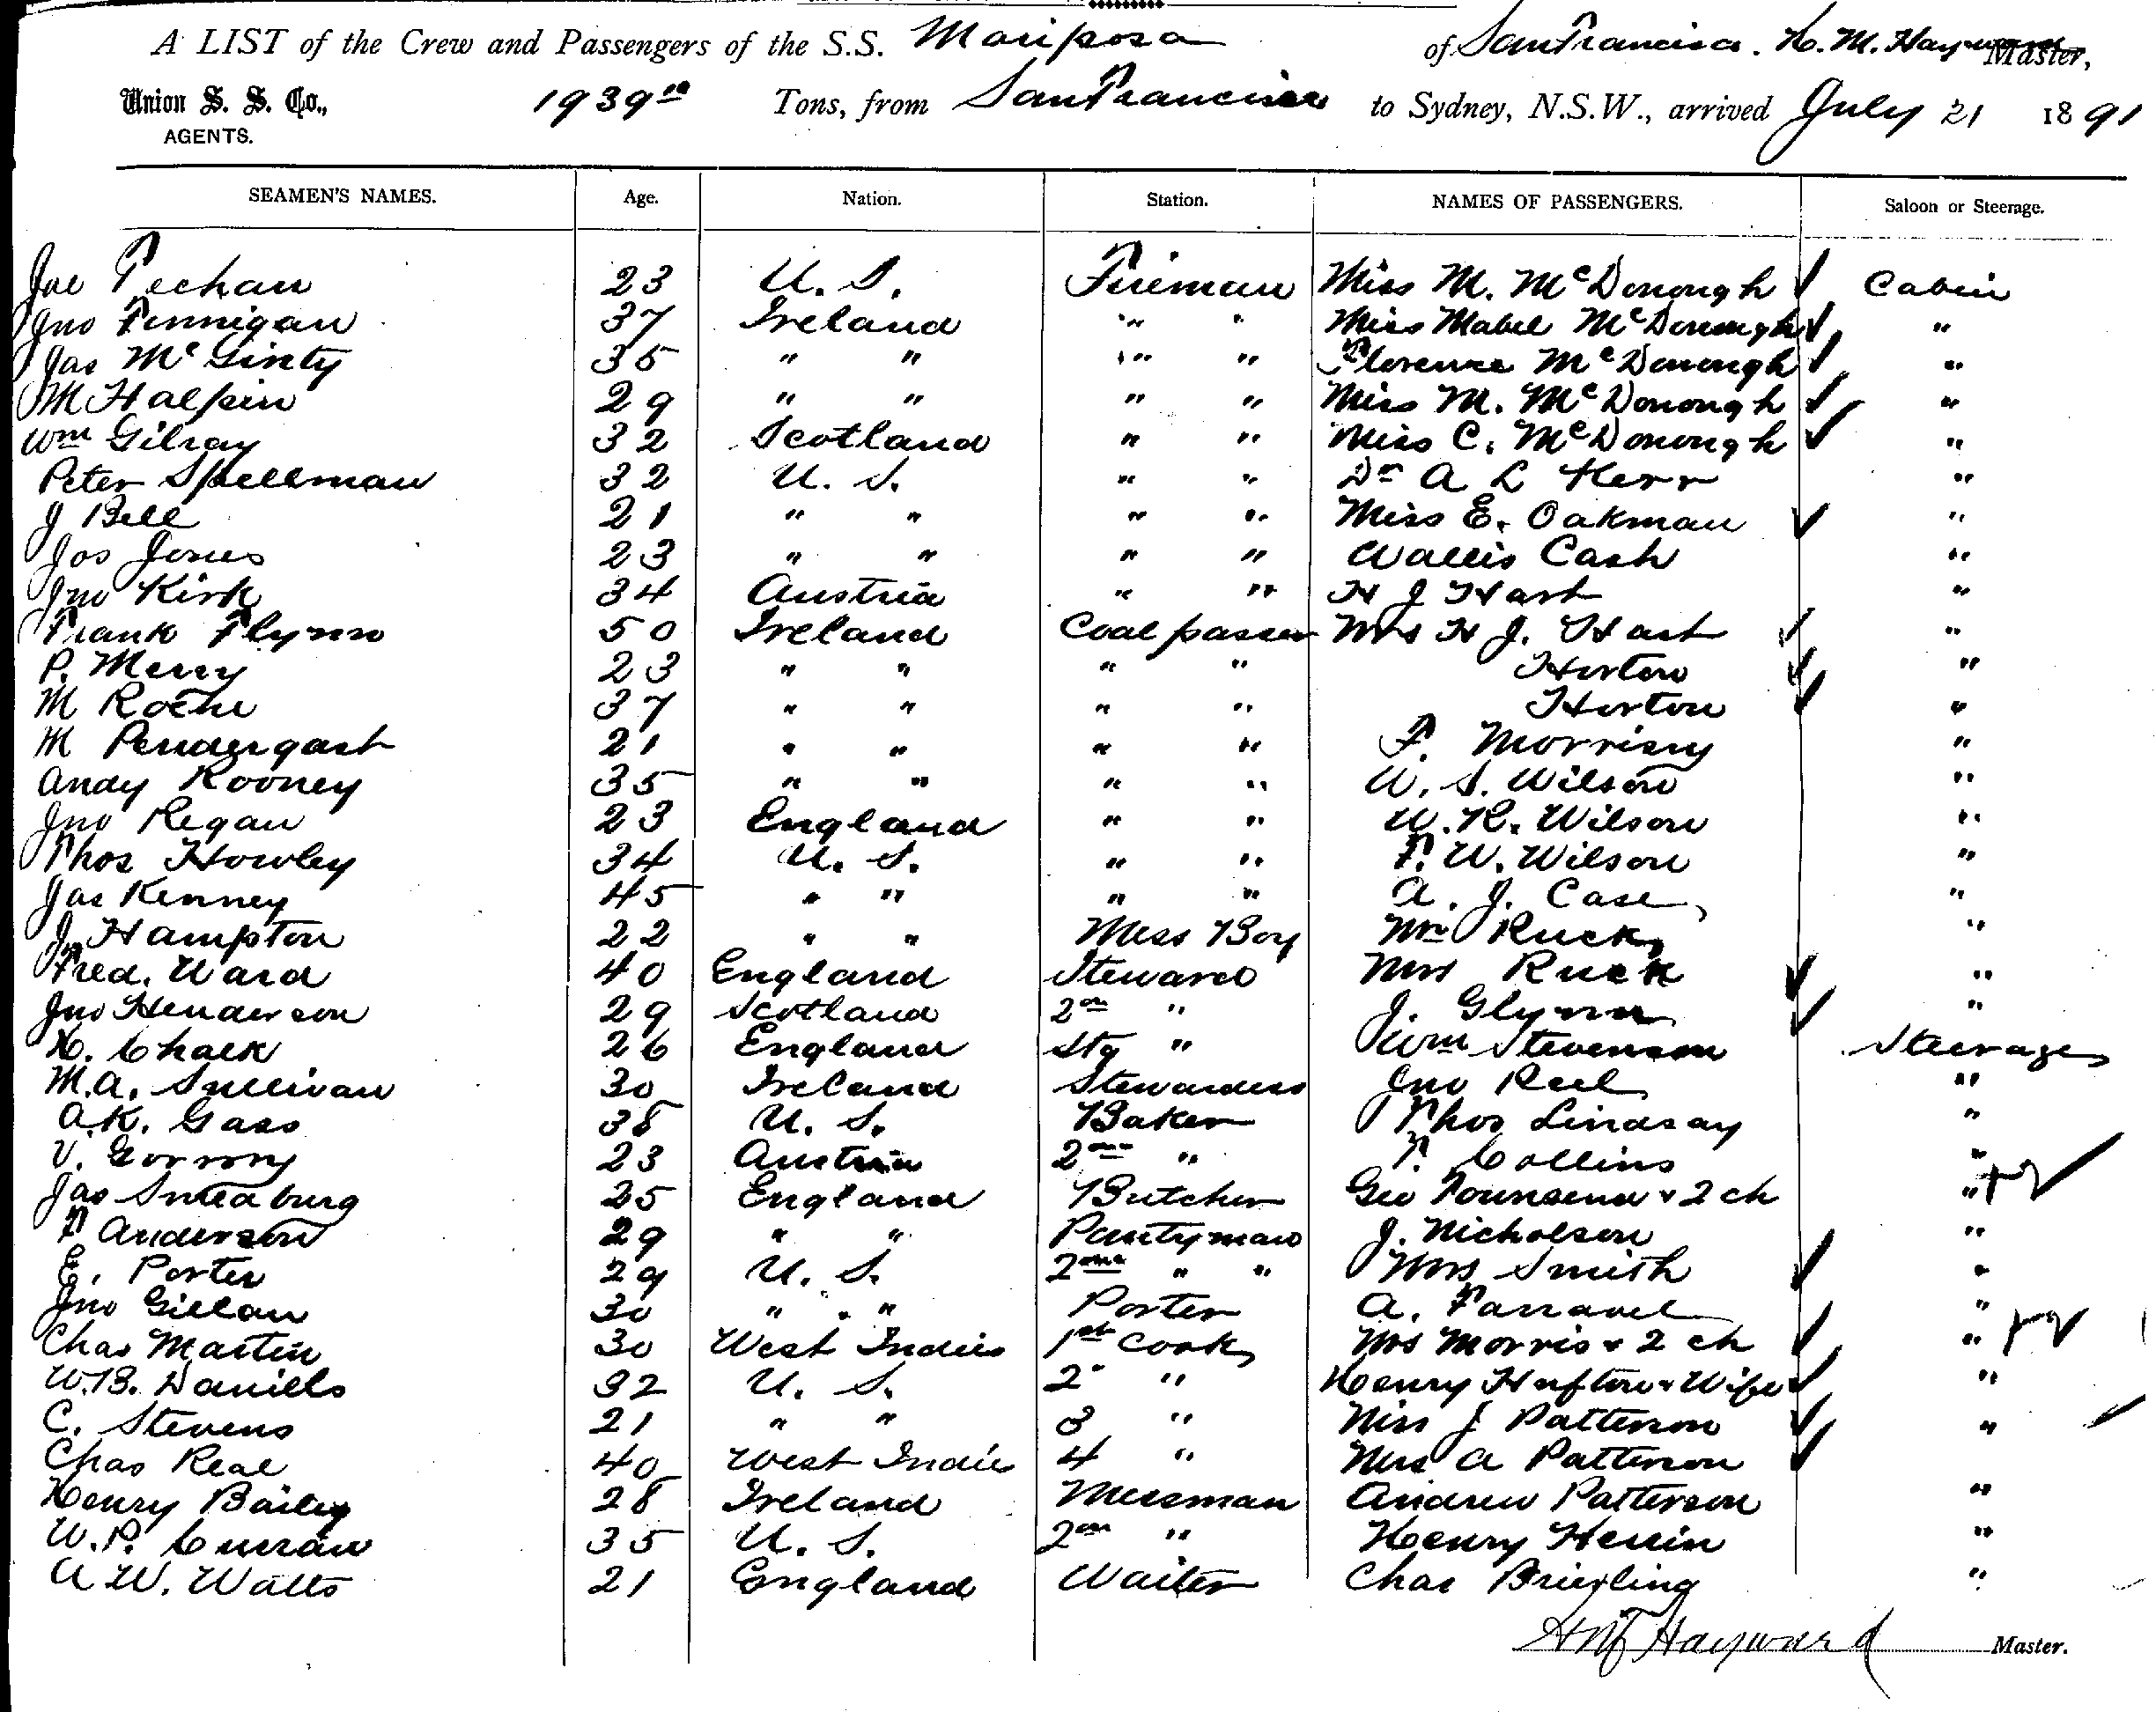 A LIST of the Crew and Passengers of the S.S. Mariposa of San Francisco. H. M. Hayward Master,
Union S. S. Co., 1939 10 Tons, from San Francisco to Sydney, N.S.W., arrived July 21 1891
AGENTS.
SEAMEN'S NAMES. Age. Nation. Station. NAMES OF PASSENGERS. Saloon or Steerage.
Joe Feehan 23 U. S. Fireman Miss M. McDonough Cabin
Jno Finnigan 37 Ireland " " Miss Mabel McDonough "
Jas McGinty 35 " " " " Florence McDonough "
M Halpin 29 " " " " Miss M. McDonough "
Wm Gilray 32 Scotland " " Miss C. McDonough "
Peter Spellman 32 U. S. " " Dr A L Kerr "
J Bell 21 " " " " Miss E. Oakman "
Jos Jones 23 " " " " Wallis Cash "
Jno Kirk 34 Austria " " H J Hart "
Frank Flynn 50 Ireland Coal passer Mrs H J. Hart "
P. Merry 23 " " " " Horton "
M Roche 37 " " " " Horton "
M Pendergast 21 " " " " F. Morrisey "
Andy Rooney 35 " " " " W. S. Wilson "
Jno Regan 23 England " " W. R. Wilson "
Thos Howley 34 U. S. " " F. W. Wilson "
Jas Kenney 45 " " " " A. J. Case "
J. Hampton 22 " " Mess Boy Mr Ruck "
Fred. Ward 40 England Steward Mrs Ruck "
Jno Henderson 29 Scotland 2nd " J. Glynn "
H. Chalk 26 England Stg " Wm Stevenson Steerage
M.A. Sullivan 30 Ireland Stewardess Jno Reel "
A.K. Gass 38 U. S. Baker Thos Lindsay "
V. 23 Austria 2nd " T. Collins "
Jas Smeaburg 25 England Butcher Geo Townsend & 2 ch "
F Anderson 29 " " Pantryman J. Nicholson "
E. Porter 29 U. S. 2nd " " Mrs Smith "
Jno Gillan 30 " " Porter A. "
Chas Martin 30 West Indies 1st Cook Mrs Morris & 2 ch "
W.B. Daniells 32 U. S. 2 " Henry & Wife "
C. Stevens 21 " " 3 " Miss J Patterson "
Chas Real 40 West Indies 4 " Mrs A Patterson "
Henry Bailey 28 Ireland Messman Andrew Patterson "
W. P. Curran 35 U. S. 2nd " Henry "
A W. Watts 21 England Waiter Chas Brierling "
H M Hayward Master.